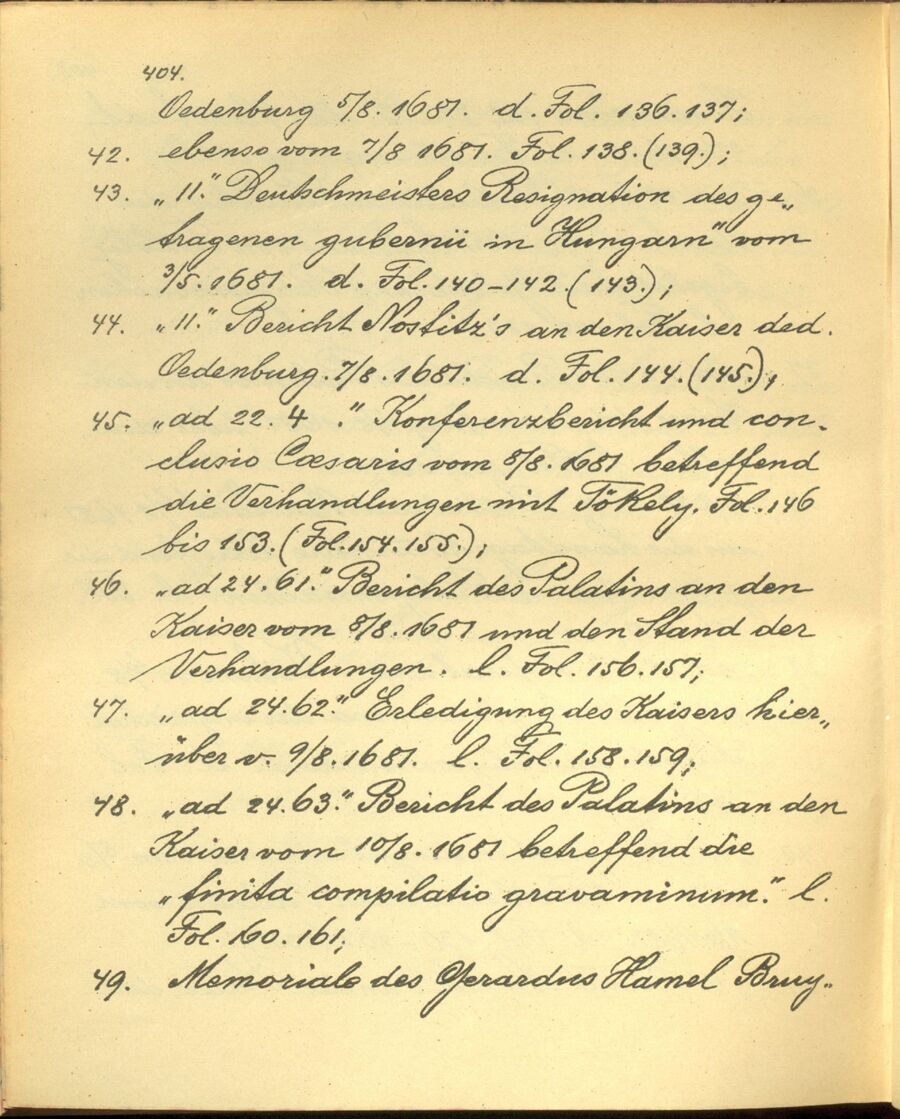 404.
Oedenburg 5/8. 1681. d. Fol. 136. 137;
42. ebenso vom 7/8 1681. Fol. 138. (139.);
43. „11.“ Deutschmeisters Resignation des ge„
tragenen gubernii in Hungarn“ vom
3/5. 1681. d. Fol. 140–142. (143.);
44. „11.“ Bericht Nostitz's an den Kaiser ded.
Oedenburg. 7/8. 1681. d. Fol. 144. (145.);
45. „ad 22. 4 .“ Konferenzbericht und con-
clusio Cæsaris vom 8/8. 1681 betreffend
die Verhandlungen mit Tökely. Fol. 146
bis 153. (Fol. 154. 155.);
46. „ad 24. 61.“ Bericht des Palatins an den
Kaiser vom 8/8. 1681 und den Stand der
Verhandlungen. l. Fol. 156. 157;
47. „ad 24. 62.“ Erledigung des Kaisers hier„
über v. 9/8. 1681. l. Fol. 158. 159;
48. „ad 24. 63.“ Bericht des Palatins an den
Kaiser vom 10/8. 1681 betreffend die
„finita compilatio gravaminum.“ l.
Fol. 160. 161;
49. Memoriale des Gerardus Hamel Bruy„